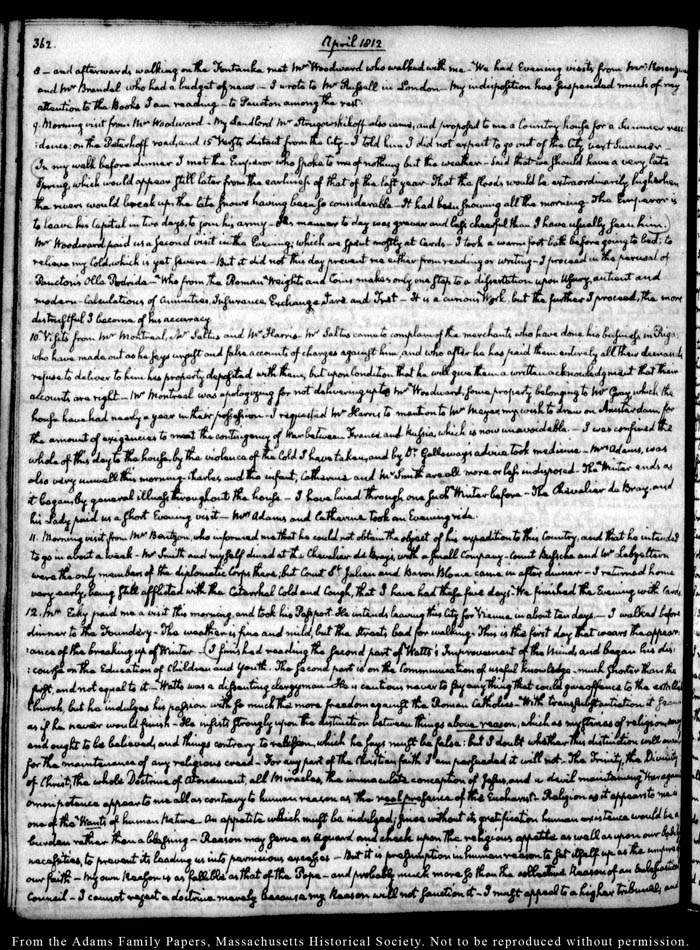 362.
April 1812
8 — and afterwards, walking on the Fontanka met Mr Woodward who walked with me — We had Evening visits from Mr
and Mr Brandel who had a budget of news — I wrote to Mr Russell in London. My indisposition has suspended much of my
attention to the Books I am reading — to Paucton among the rest
9. Morning visit from Mr Woodward — My Landlord Mr Strogowshikoff also came, and proposed to me a Country house for a Summer resi
:dence; on the Peterhoff road, and 15 Wersts distant from the City — I told him I did not expect to go out of the City next Summer —
(In my walk before dinner I met the Emperor who spoke to me of nothing but the weather — Said that we should have a very late
Spring, which would appear still later from the earliness of that of the last year — That the floods would be extraordinarily high when
the rivers would break up the late snows having been so considerable — It had been snowing all the morning. The Emperor is
to leave his Capital in two days, to join his army — His manner to day was graver and less cheerful than I have usually seen him.)
Mr Woodward paid us a second visit in the Evening; which we spent mostly at Cards — I took a warm foot bath before going to bed; to
relieve my Cold, which is yet severe — But it did not this day prevent me either from reading or writing — I proceed in the perusal of
Paucton's Olla Podrida — Who from the Roman Weights and Coins makes only one step to a dissertation upon Usury, antient and
modern — Calculations of Annuities, Insurance, Exchange, Tare and Tret — It is a curious Work, but the further I proceed, the more
distrustful I become of his accuracy
10. Visits from Mr Montreal, Mr Saltus and Mr Harris. Mr Saltus came to complain of the merchants who have done his business in Riga,
who have made out as he says unjust and false accounts of charges against him, and who after he has paid them entirely all their demands
refuse to deliver to him his property deposited with them, but upon condition that he will give them a written acknowledgment that their
accounts are right — Mr Montreal was apologizing for not delivering up to Mr Woodward, some property belonging to Mr Gray which the
house have had nearly a year in their possession — I requested Mr Harris to mention to Mr Meyer, my wish to draw on Amsterdam, for
the amount of exigencies to meet the contingency of War between France and Russia, which is now unavoidable — I was confined the
whole of this day to the house, by the violence of the Cold I have taken, and by Dr Galloway's advice took medicine — Mrs Adams, was
also very unwell this morning. Charles, and the infant, Catherine and Mr Smith are all more or less indisposed. The Winter ends as
it began by general illness throughout the house — I have lived through one such Winter before — The Chevalier de Bray, and
his Lady paid us a short Evening visit — Mrs Adams and Catherine took an Evening ride.
11. Morning visit from Mr Bentzon, who informed me that he could not obtain the object of his expedition to this Country, and that he intended
to go in about a week — Mr Smith and myself dined at the Chevalier de Bray's, with a small Company — Count Bussche and
were the only members of the diplomatic Corps there; but Count St Julien and Baron Blome came in after dinner — I returned home
very early, being still afflicted with the Catarrhal Cold and Cough, that I have had these five days. We finished the Evening with Cards
12. Mr paid me a visit this morning, and took his Passport. He intends leaving this City for Vienna in about ten days — I walked before
dinner to the Foundery — The weather is fine and mild, but the Streets bad for walking. This is the first day that wears the appear
:ance of the breaking up of Winter — (I finished reading the Second part of Watts's Improvement of the Mind, and began his dis
:course on the Education of Children and Youth. The Second part is on the Communication of useful knowledge. much shorter than the
first, and not equal to it — Watts was a dissenting clergyman — He is cautious never to say any thing that could give offence to the
Church, but he indulges his passion with so much the more freedom against the Roman Catholics — With transubstantiation it
as if he never would finish — He insists strongly upon the distinction between things above reason, which as mysteries of religion may
and ought to be believed, and things contrary to reason, which he says must be false: but I doubt whether this distinction will
for the maintenance of any religious creed — For any part of the Christian faith I am persuaded it will not. The Trinity, the Divinity
of Christ, the whole Doctrine of atonement, all Miracles, the immaculate conception of Jesus, and a devil maintaining
omnipotence appear to me all as contrary to human reason as the real presence of the Eucharist. Religion as it appears to me is
one of the Wants of human Nature. An appetite which must be indulged, since without its gratification human existence would be a
burden rather than a blessing — Reason may serve as a guard and check upon the religious appetite as well as upon our
necessities, to prevent its leading us into pernicious excesses — But it is presumption in human reason to set itself up as the umpire of
our faith — my own Reason is as fallible as that of the Pope — and probably much more so than the collective Reason of an Ecclesiastical
Council — I cannot reject a doctrine merely because my Reason will not sanction it — I must appeal to a higher tribunal, and
From the Adams Family Papers, Massachusetts Historical Society. Not to be reproduced without permission.